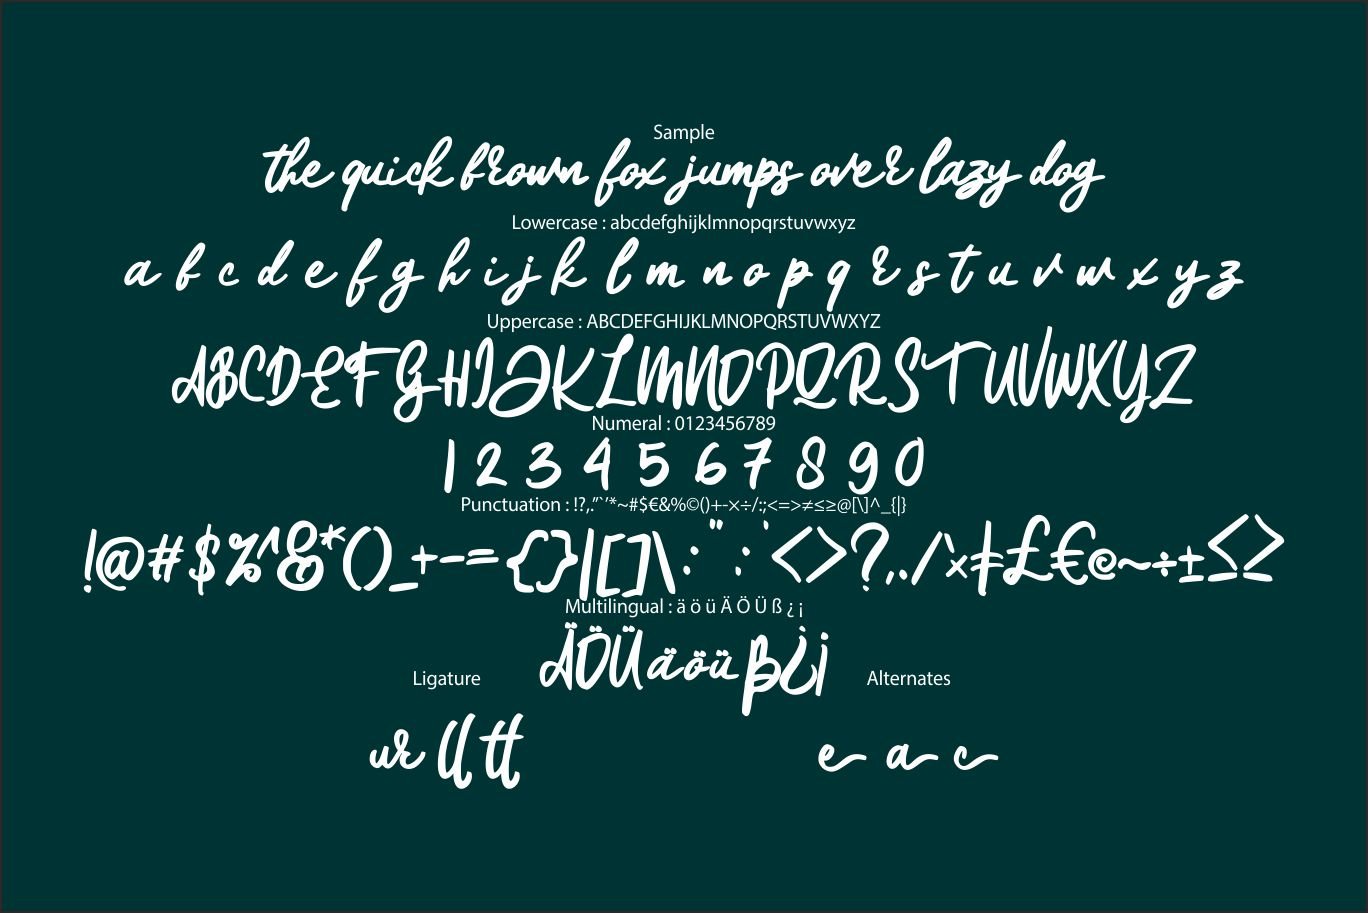 Sample
the quick brown fox jumps over lazy dog
Lowercase : abcdefghijklmnopqrstuvwxyz
a b c d e f g h i j k l m n o p q r s t u v w x y z
Uppercase : ABCDEFGHIJKLMNOPQRSTUVWXYZ
ABCDEFGHIJKLMNOPQRSTUVWXYZ
Numeral : 0123456789
1 2 3 4 5 6 7 8 9 0
Punctuation : !?,.”`’*~#$€&%©()+-×÷/:;<=>≠≤≥@[\]^_{|}
!@#$%^&*()_+-={}|[]\:":'<>?,./`×≠£€©~÷±≤≥
Multilingual : ä ö ü Ä Ö Ü ß ¿ ¡
ÄÖÜäöüß¿¡
Ligature
Alternates
ur ll tt
e a c